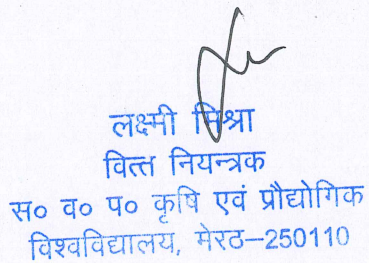 लक्ष्मी मिश्रा
वित्त नियन्त्रक
स० व० प० कृषि एवं प्रौद्योगिक
विश्वविद्यालय, मेरठ–250110